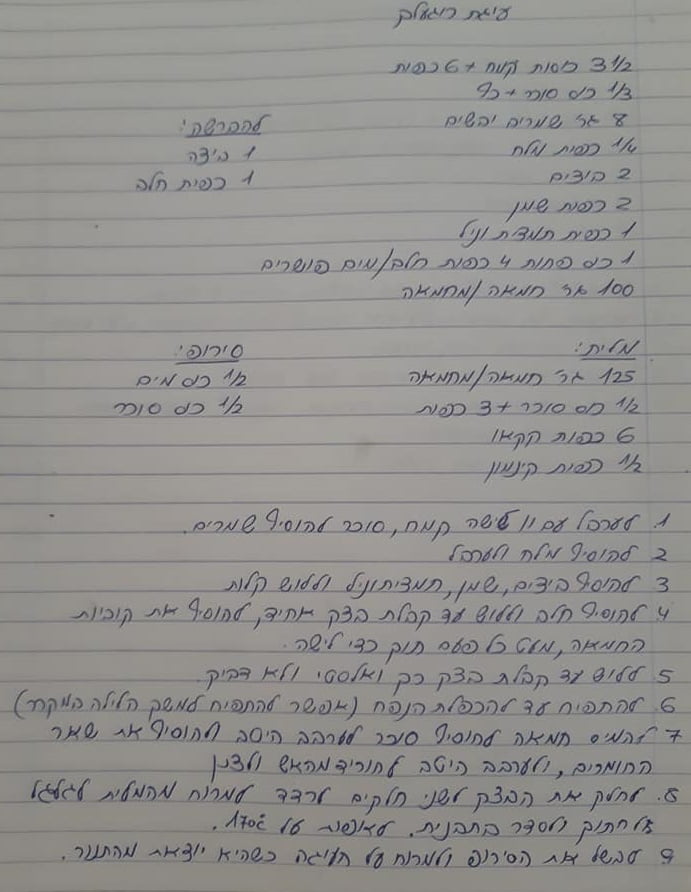 עוגת רוגעלך
3 1/2 כוסות קמח + 6 כפות
1/3 כוס סוכר + כף
8 גר שמרים יבשים
1/4 כפית מלח
2 ביצים
2 כפות שמן
1 כפית תמצית וניל
1 כוס פחות 4 כפות חלב/מים פושרים
100 גר חמאה/מחמאה
להברשה:
1 ביצה
1 כפית חלב
מלית:
125 גר' חמאה/מחמאה
1/2 כוס סוכר + 3 כפות
6 כפות קקאו
1/2 כפית קינמון
סירופ:
1/2 כוס מים
1/2 כוס סוכר
1. לערבל עם וו לישה קמח, סוכר להוסיף שמרים.
2 להוסיף מלח ולערבל
3 להוסיף ביצים, שמן, תמצית וניל וללוש קלות
4 להוסיף חלב וללוש עד קבלת בצק אחיד, להוסיף את קוביות
החמאה, מעט כל פעם תוך כדי לישה.
5 ללוש עד קבלת בצק רך ואלסטי ולא דביק.
6. להתפיח עד להכפלת הנפח (אפשר להתפיח למשך הלילה במקרר)
7 להמיס חמאה להוסיף סוכר לערבב היטב ולהוסיף את שאר
החומרים, ולערבב היטב להוריד מהאש ולצנן
8. לחלק את הבצק לשני חלקים לרדד למרוח מהמלית לגלגל
לחתוך ולסדר בתבנית. לאפות על 170°c.
9 לבשל את הסירופ ולמרוח על העוגה כשהיא יוצאת מהתנור.